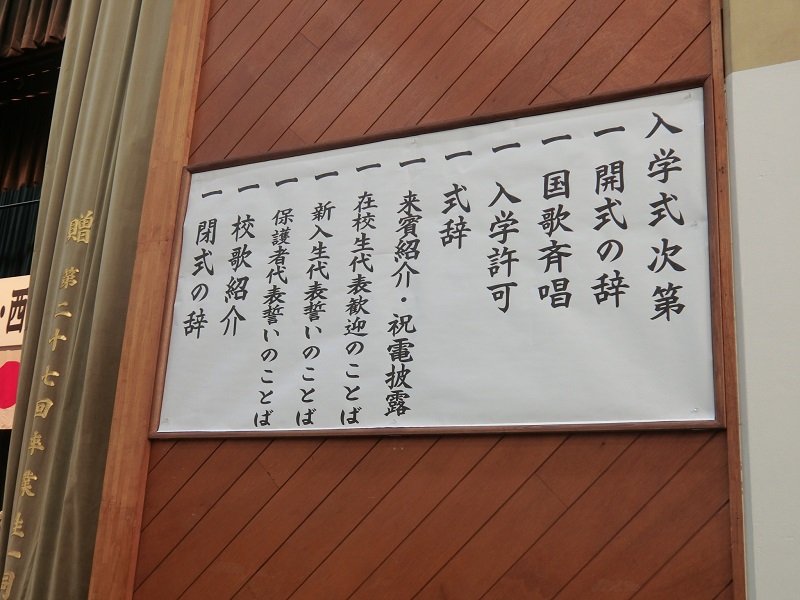 入学式次第
一 開式の辞
一 国歌斉唱
一 入学許可
一 式辞
一 来賓紹介・祝電披露
一 在校生代表歓迎のことば
一 新入生代表誓いのことば
一 保護者代表誓いのことば
一 校歌紹介
一 閉式の辞
贈 第二十七回卒業生一同
・西